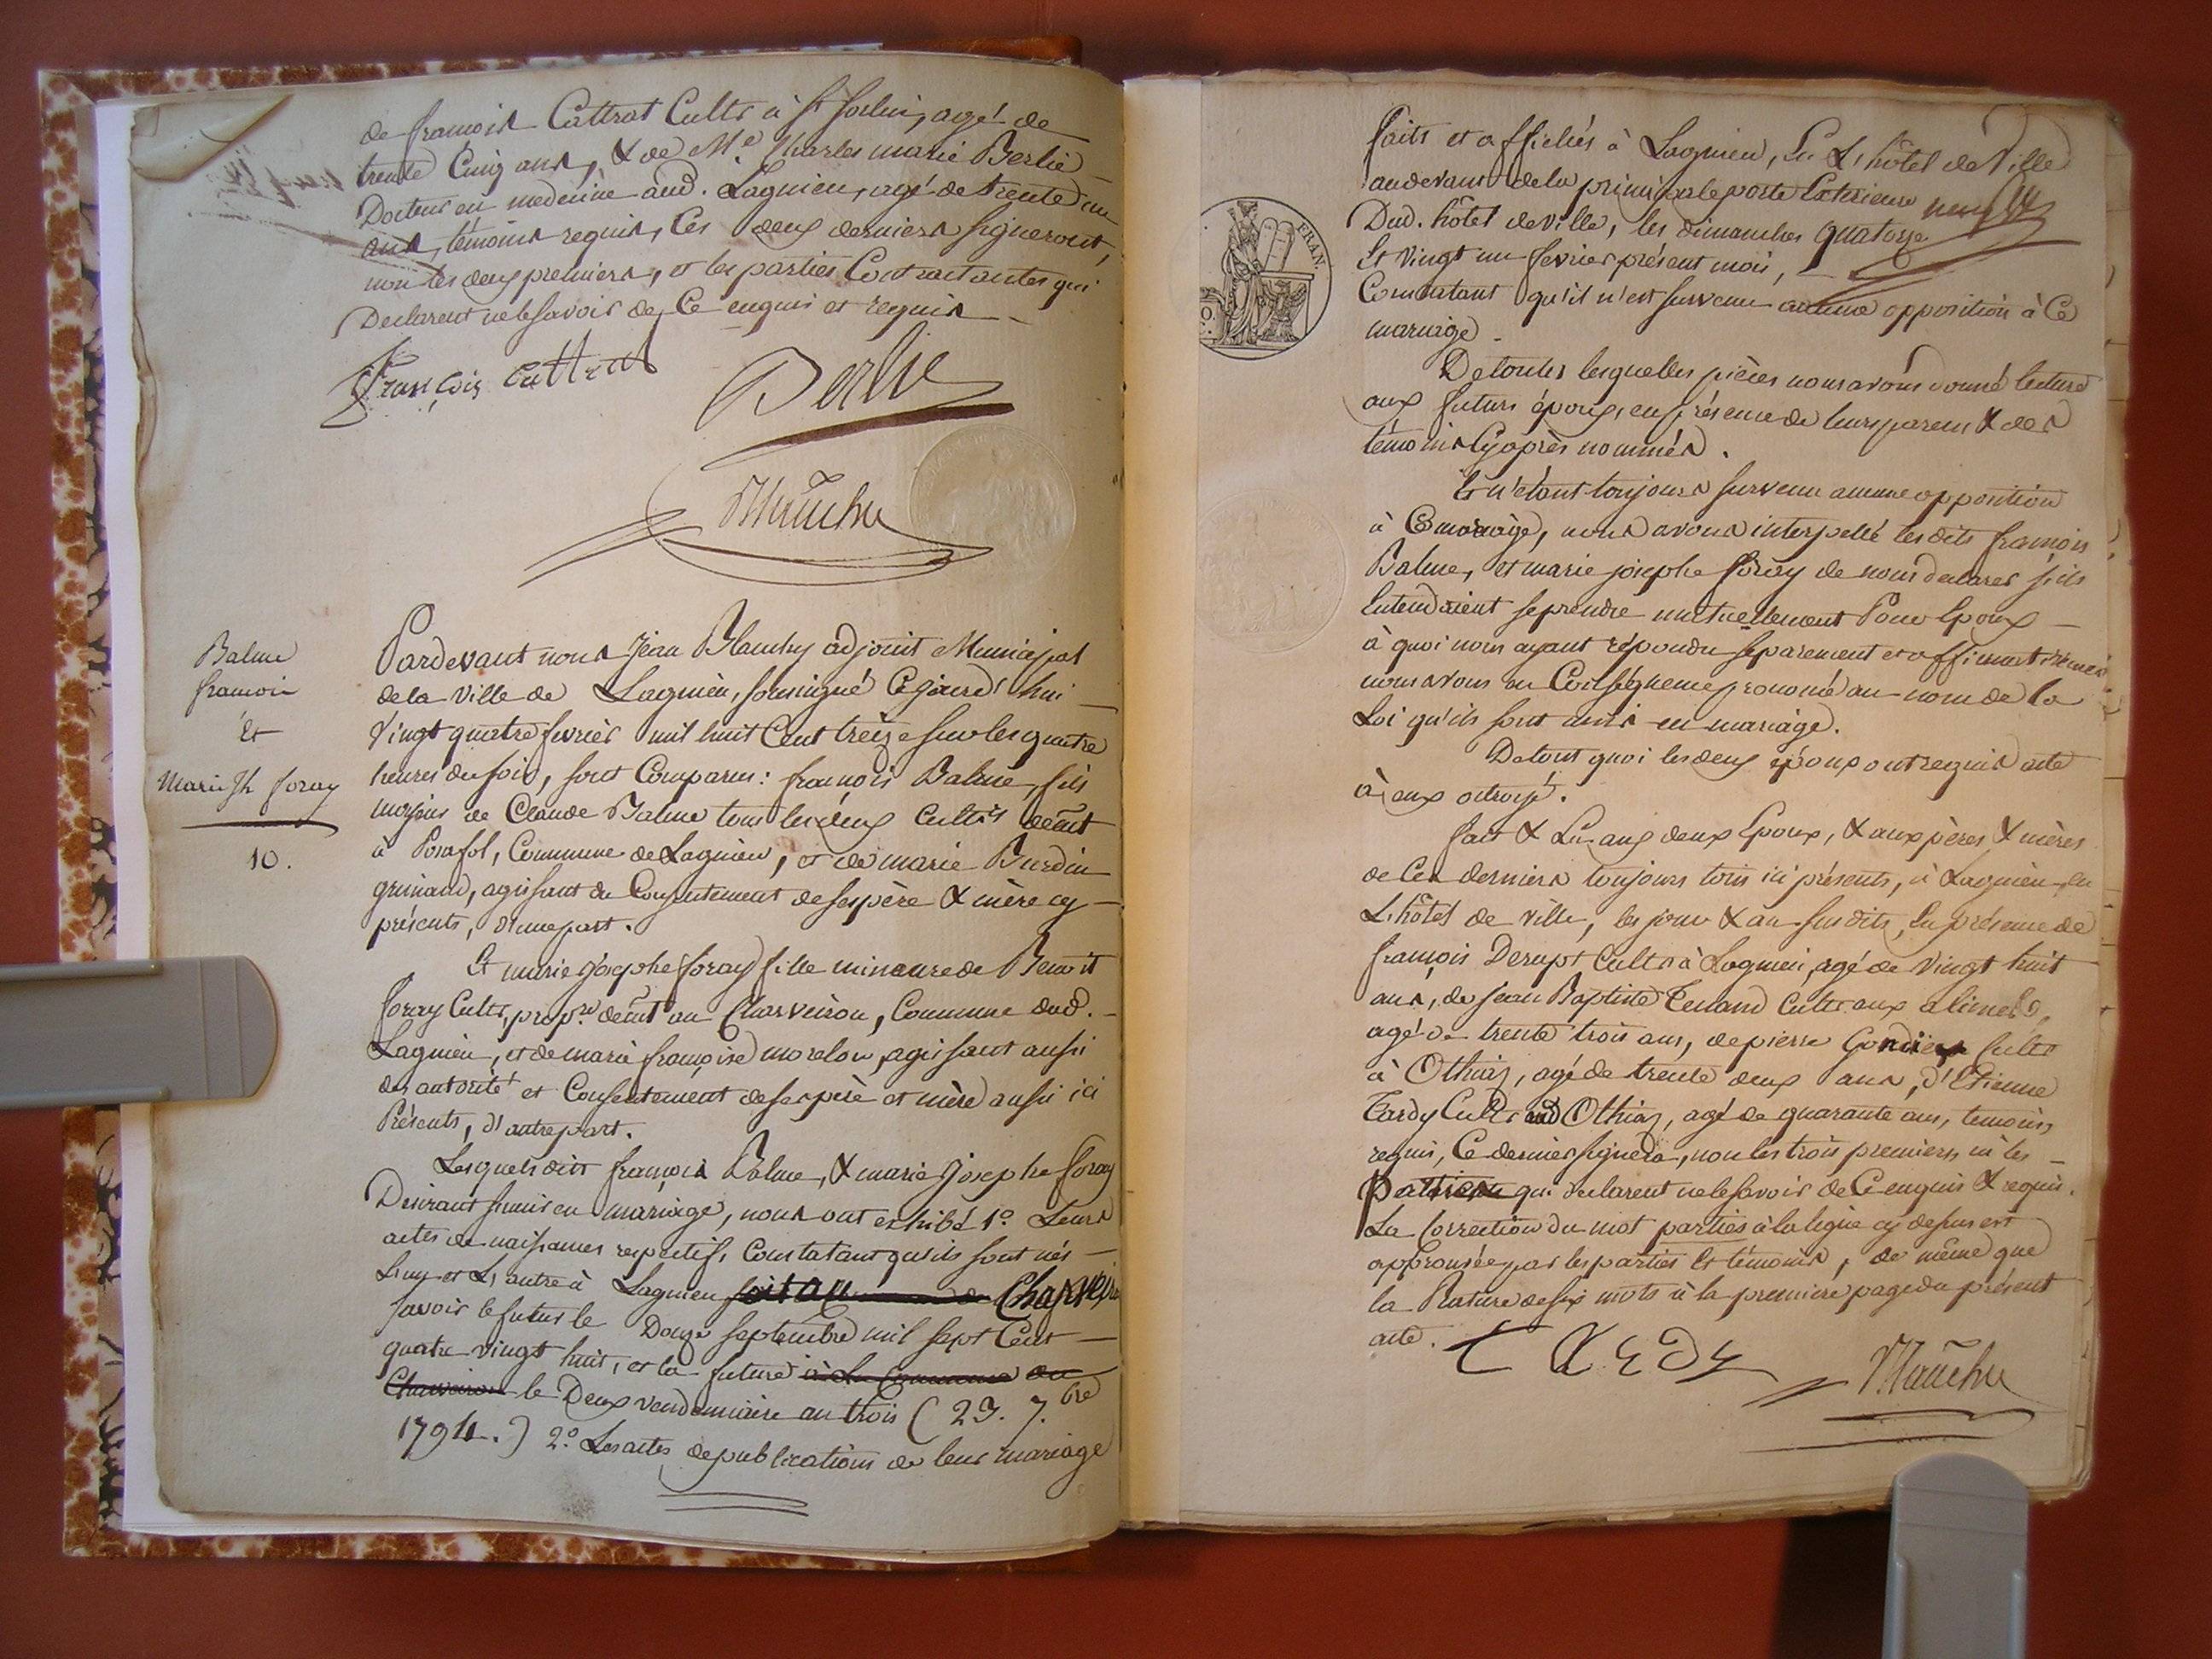 de françois Cattrat Cultr à St Sorlin, agé de
trente Cinq ans, & de Me. Charles marie Berlie
Docteur en medecine aud. Lagnieu, agé de trente un
ans, témoins requis, Ces deux derniers signeront,
non les deux premiers, et les parties Contractantes qui
Declarent ne le savoir de Ce enquis et requis
François Cattrat
Berlie
Balme
francois
Et
Marie Jh foray
10.
Pardevant nous Jean adjoint Municipal
de la Ville de Lagnieu, soussigné Cejourd'hui
Vingt quatre fevrier mil huit Cent treize sur les quatre
heures du soir, sont Comparus: françois Balme, fils
de Claude Balme tous les deux Cultrs demt
à Posafol, Commune de Lagnieu, et de marie Burdin
grimaud, agissant du Consentement de ses père & mère cy
présents, d'une part.
Et marie josephe foray fille mineure de Benoit
foray Cultr, propre demt au Charveiron, Commune dud.
Lagnieu, et de marie françoise morelon, agissant aussi
des autorité et Consentement de ses père et mère aussi ici
Présents, d'autre part.
Lesquels dits françois Balme, & marie Josephe foray
Desirant s'unir en mariage, nous ont exhibé 1º. Leurs
actes de naissances respectifs, Constatant qu'ils sont nés
L'un et L'autre à Lagnieu
savoir le futur le Douze septembre mil sept Cent
quatre vingt huit, et la future à la Commune du
Charveiron le Deux vendemiaire an trois (23. 7.bre
1794.) 2º. Les actes de publications de leur mariage
FRAN.
faits et affichés à Lagnieu, En L'hôtel de Ville
audevant de la principale porte Exterieure
Dud. hôtel de ville, les dimanches quatorze
Et Vingt un fevrier présent mois,
Constatant qu'il n'est survenu aucune opposition à Ce
mariage.
De toutes lesquelles pièces nous avons donné lecture
aux futurs époux, en présence de leurs parens & des
témoins Cy après nommés.
Et n'étant toujours survenu aucune opposition
à Ce mariage, nous avons interpellé les dits françois
Balme, et marie josephe foray de nous declarer s'ils
Entendaient se prendre mutuellement Pour Epoux
à quoi nous ayant répondu séparement et affirmativement
nous avons en Conséquence prononcé au nom de la
Loi qu'ils sont unis en mariage.
De tout quoi les deux époux ont requis acte
à eux octroyé.
fait & Lu aux deux Epoux, & aux pères & mères
de Ces derniers toujours tous ici présents, à Lagnieu, en
L'hôtel de ville, les jour & an susdits, En présence de
françois Derupt Cultr à Lagnieu, agé de Vingt huit
ans, de jean Baptiste Tenand Cultr aux
agé de trente trois ans, de pierre Cultr
à Othiaz, agé de trente deux ans, d'Etienne
Tardy Cultr aud Othiaz, agé de quarante ans, temoins
requis, Ce dernier signera, non les trois premiers ni les
Parties qui declarent ne le savoir de Ce enquis & requis.
La Correction du mot parties à la ligne cy dessus est
approuvée par les parties Et témoins, de même que
la Rature de six mots à la premiere page du présent
acte.